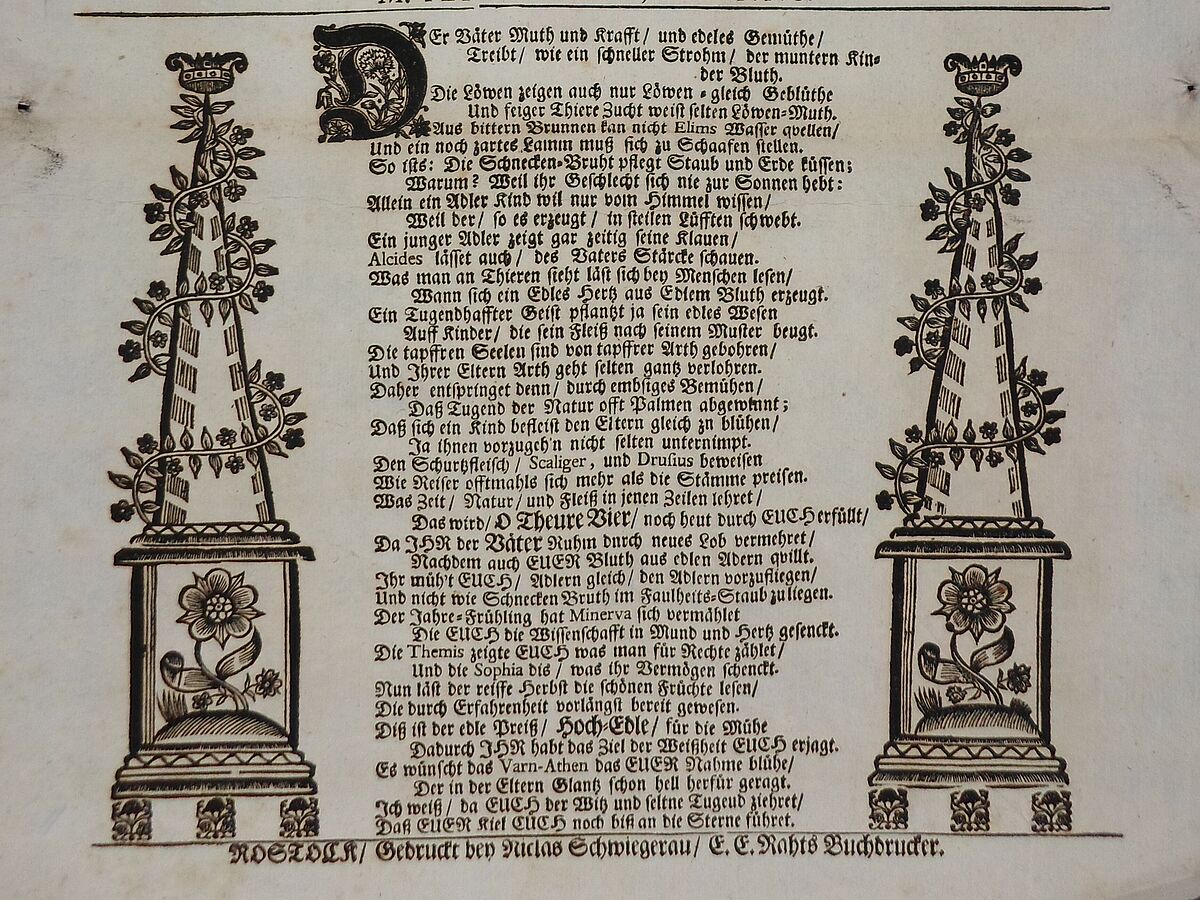 DEr Väter Muth und Krafft/ und edeles Gemüthe/
Treibt/ wie ein schneller Strohm/ der muntern Kin-
der Bluth.
Die Löwen zeigen auch nur Löwen-gleich Geblüthe
Und feiger Thiere Zucht weist selten Löwen-Muth.
Aus bittern Brunnen kan nicht Elims Wasser qvellen/
Und ein noch zartes Lamm muß sich zu Schaafen stellen.
So ists: Die Schnecken-Bruht pflegt Staub und Erde küssen;
Warum? Weil ihr Geschlecht sich nie zur Sonnen hebt:
Allein ein Adler Kind wil nur vom Himmel wissen/
Weil der/ so es erzeugt/ in steilen Lüfften schwebt.
Ein junger Adler zeigt gar zeitig seine Klauen/
Alcides lässet auch/ des Vaters Stärcke schauen.
Was man an Thieren sieht läst sich bey Menschen lesen/
Wann sich ein Edles Hertz aus Edlem Bluth erzeugt.
Ein Tugendhaffter Geist pflantzt ja sein edles Wesen
Auff Kinder/ die sein Fleiß nach seinem Muster beugt.
Die tapffren Seelen sind von tapffrer Arth gebohren/
Und Ihrer Eltern Arth geht selten gantz verlohren.
Daher entspringet denn/ durch embsiges Bemühen/
Daß Tugend der Natur offt Palmen abgewinnt;
Daß sich ein Kind befleist den Eltern gleich zu blühen/
Ja ihnen vorzugeh'n nicht selten unternimpt.
Den Schurtzfleisch/ Scaliger, und Drusius beweisen
Wie Reiser offtmahls sich mehr als die Stämme preisen.
Was Zeit/ Natur/ und Fleiß in jenen Zeilen lehret/
Das wird/ O Theure Vier/ noch heut durch EUCH erfüllt/
Da JHR der Väter Ruhm durch neues Lob vermehret/
Nachdem auch EUER Bluth aus edlen Adern qvillt.
Ihr müh't EUCH/ Adlern gleich/ den Adlern vorzufliegen/
Und nicht wie Schnecken Bruth im Faulheits-Staub zu liegen.
Der Jahre-Frühling hat Minerva sich vermählet
Die EUCH die Wissenschafft in Mund und Hertz gesenckt.
Die Themis zeigte EUCH was man für Rechte zählet/
Und die Sophia dis/ was ihr Vermögen schenckt.
Nun läst der reiffe Herbst die schönen Früchte lesen/
Die durch Erfahrenheit vorlängst bereit gewesen.
Diß ist der edle Preiß/ Hoch-Edle/ für die Mühe
Dadurch JHR habt das Ziel der Weißheit EUCH erjagt.
Es wünscht das Varn-Athen das EUER Nahme blühe/
Der in der Eltern Glantz schon hell herfür geragt.
Ich weiß/ da EUCH der Witz und seltne Tugeud ziehret/
Daß EUER Kiel EUCH noch biß an die Sterne führet.
ROSTOCK/ Gedruckt bey Niclas Schwiegerau/ E. E. Rahts Buchdrucker.